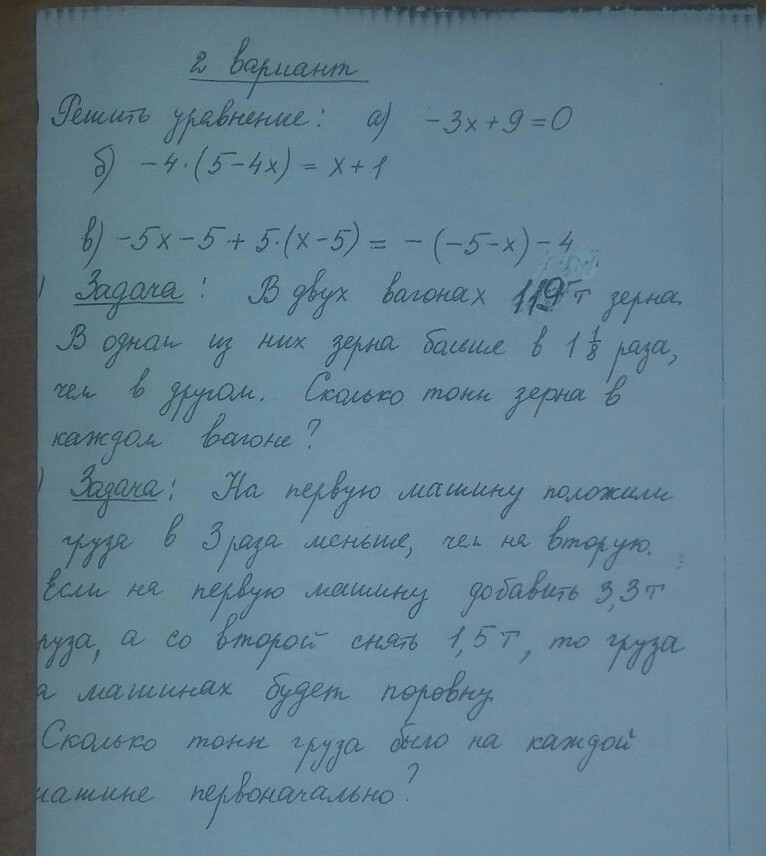 2 вариант
) Решить уравнение: а) -3x+9=0
б) -4·(5-4x) = x+1
в) -5x-5+5·(x-5) = -(-5-x)-4
) Задача: В двух вагонах 119 т зерна.
В одном из них зерна больше в 1 1/8 раза,
чем в другом. Сколько тонн зерна в
каждом вагоне?
) Задача: На первую машину положили
груза в 3 раза меньше, чем на вторую.
Если на первую машину добавить 3,3 т
руза, а со второй снять 1,5 т, то груза
а машинах будет поровну.
Сколько тонн груза было на каждой
машине первоначально?